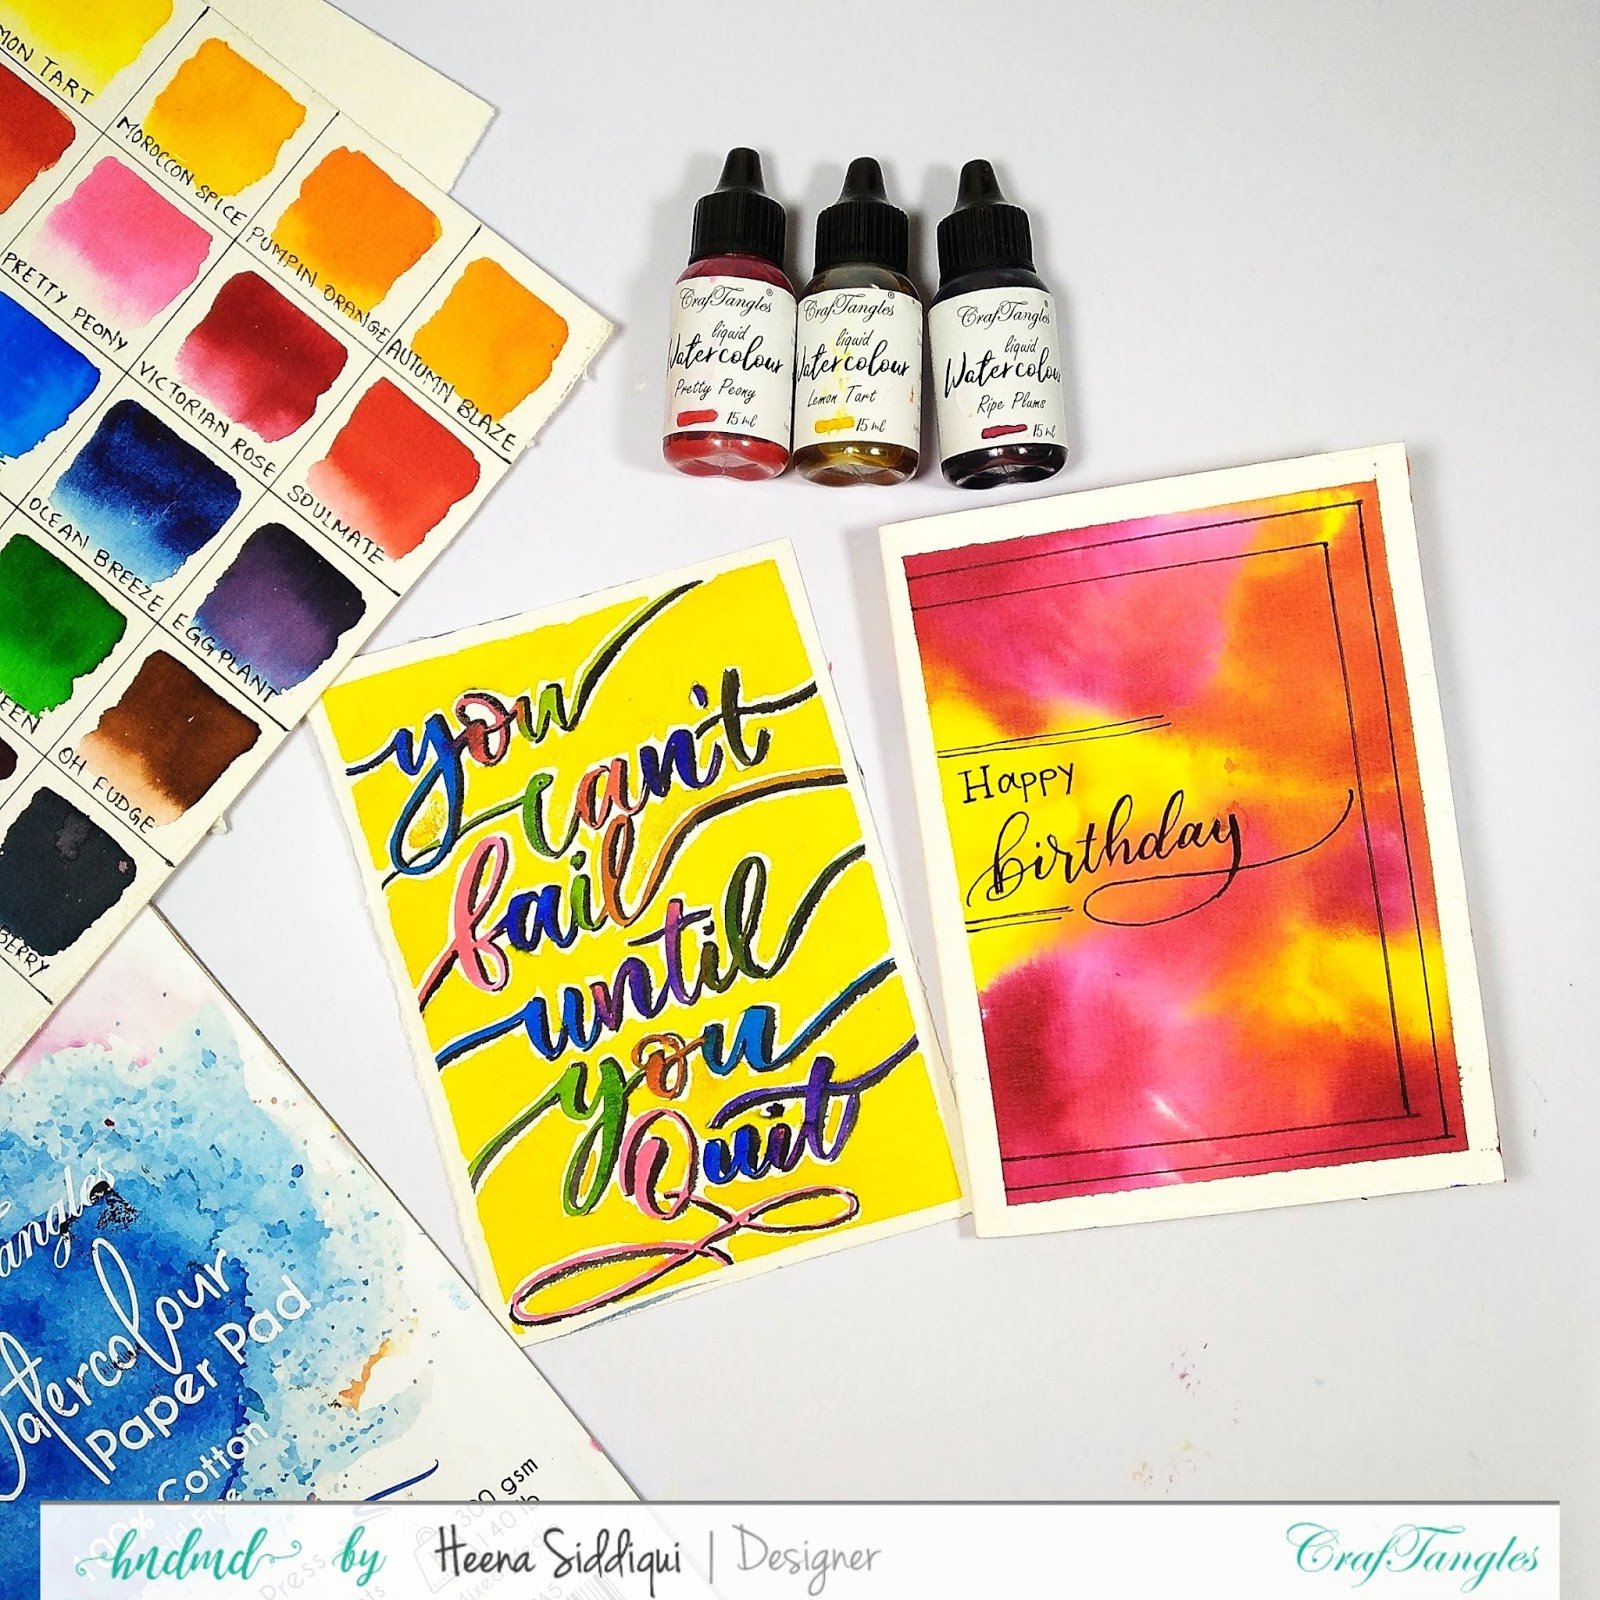 MON TART
MOROCCON SPICE
PUMPIN ORANGE
AUTUMN BLAZE
PRETTY PEONY
VICTORIAN ROSE
SOULMATE
OCEAN BREEZE
EGG PLANT
EEN
OH FUDGE
BERRY
CrafTangles®
liquid
Watercolour
Pretty Peony
15 ml
CrafTangles®
liquid
Watercolour
Lemon Tart
15 ml
CrafTangles®
liquid
Watercolou
Ripe Plums
15 ml
you
can't
fail
until
you
Quit
Happy
birthday
angles
Watercolour
Paper Pad
100% Cotton
300 gsm
140 lb
hndmd by Heena Siddiqui | Designer
CrafTangles